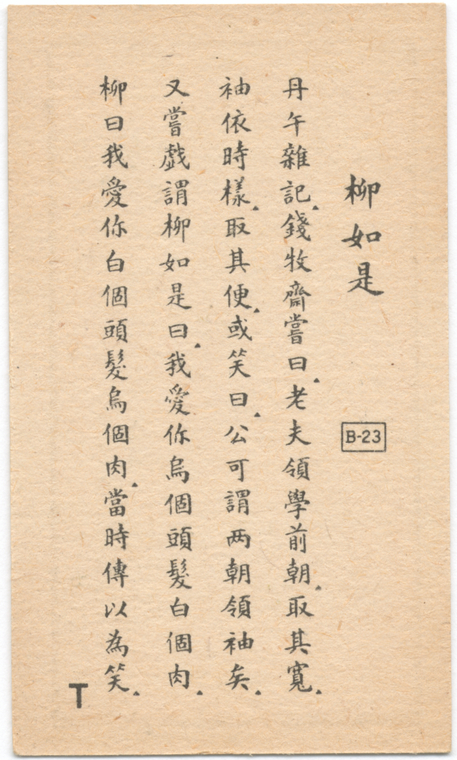 柳如是
B-23
丹午雜記.錢牧齋嘗曰.老夫領學前朝.取其寬.
袖依時樣.取其便.或笑曰.公可謂两朝領袖矣.
又嘗戲謂柳如是曰.我愛你烏個頭髮白個肉.
柳曰我愛你白個頭髮烏個肉.當時傳以為笑.
T